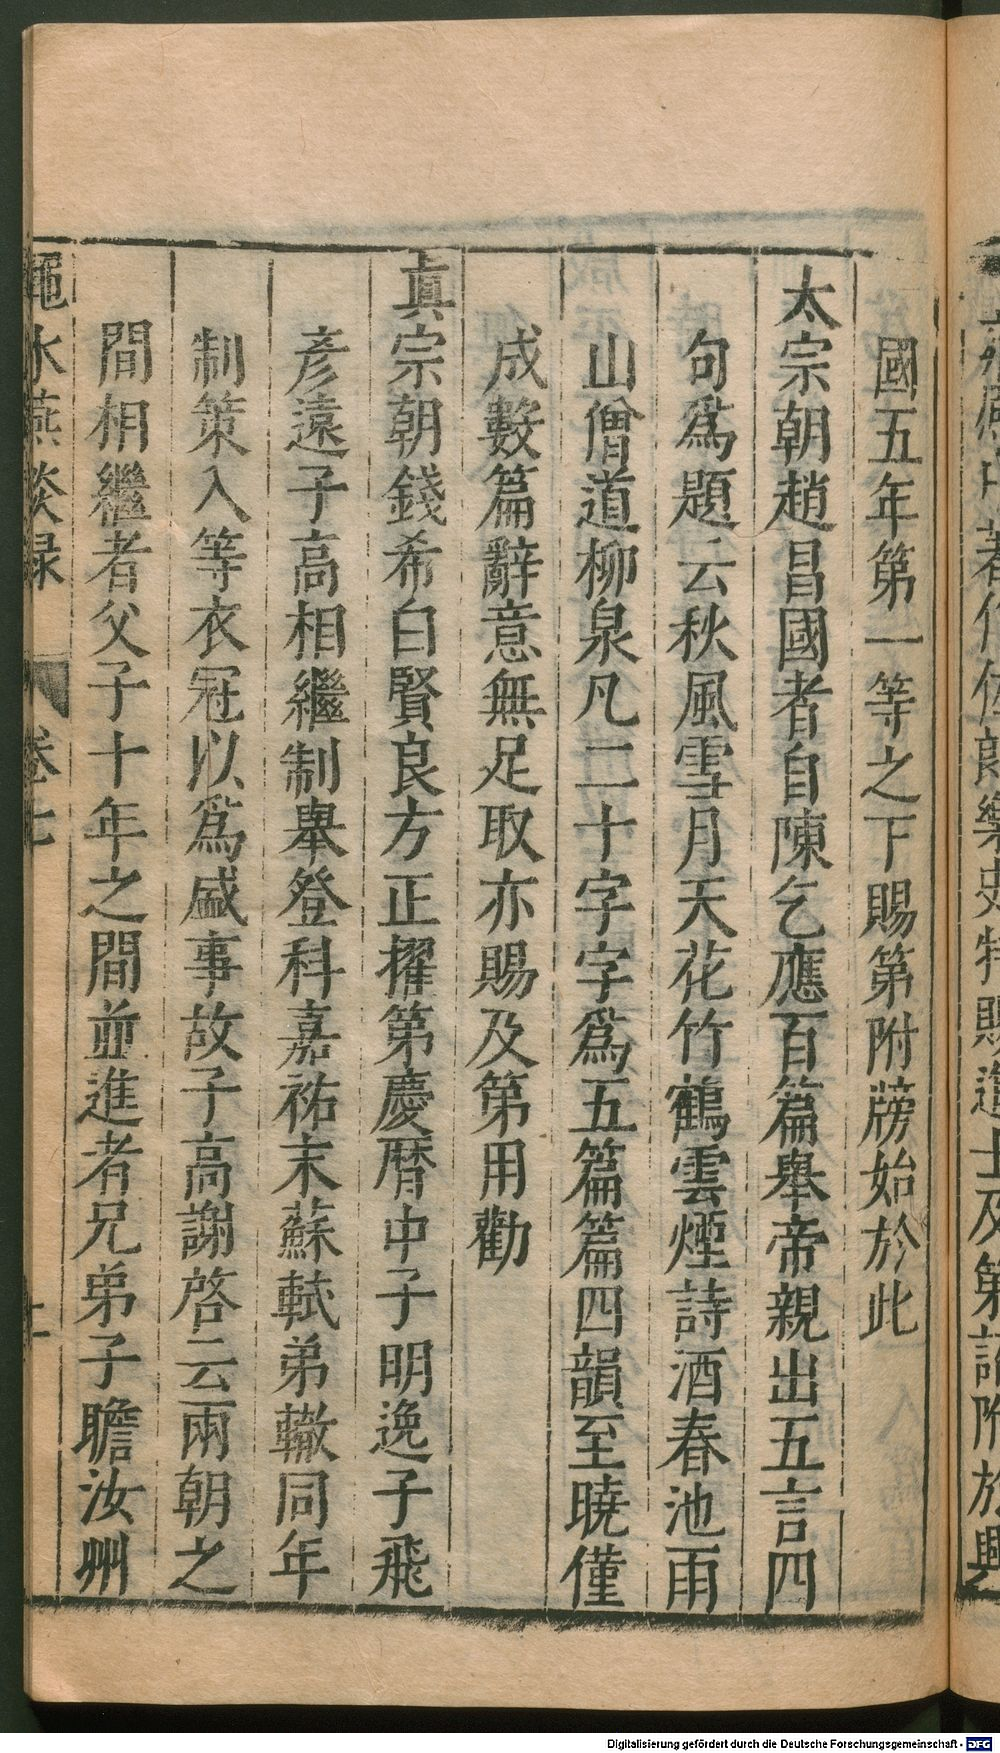 國五年第一等之下賜第附牓始於此
太宗朝趙昌國者自陳乞應百篇舉帝親出五言四
句爲題云秋風雪月天花竹鶴雲煙詩酒春池雨
山僧道柳泉凡二十字字爲五篇篇四韻至曉僅
成數篇辭意無足取亦賜及第用勸
真宗朝錢希白賢良方正擢第慶曆中子明逸子飛
彥遠子高相繼制舉登科嘉祐末蘇軾弟轍同年
制策入等衣冠以爲盛事故子高謝啓云兩朝之
間相繼者父子十年之間並進者兄弟子瞻汝州
澠水燕談録 卷七
Digitalisierung gefördert durch die Deutsche Forschungsgemeinschaft - DFG